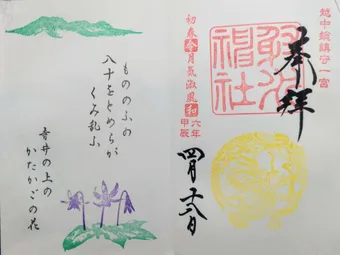 越中総鎮守一宮
奉拝
射水神社
初春令月気淑風和六年
甲辰
四月
もののふの
八十をとめらが
くみ乱ふ
寺井の上の
かたかごの花